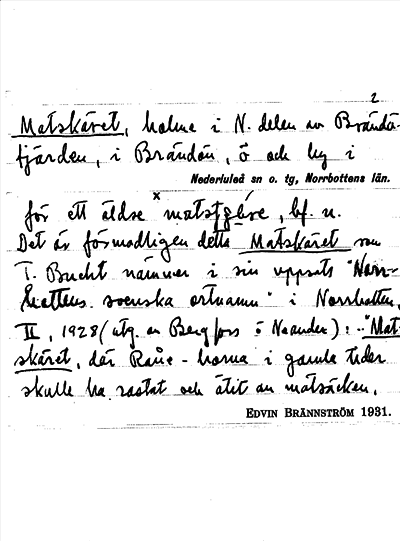 2
Matskäret, holme i N. delen av Brändö-
fjärden, i Brändön, ö och by i
Nederluleå sn o. tg, Norrbottens län.
för ett äldre x matsgäre, bf. n.
Det är förmodligen detta Matskäret som
T. Bucht nämner i sin uppsats "Norr-
bottens svenska ortnamn" i Norrbotten,
II, 1928 (utg. av Bergfors o Neander): "Mat-
skäret, där Råne-borna i gamla tider
skulle ha rastat och ätit av matsäcken.
EDVIN BRÄNNSTRÖM 1931.